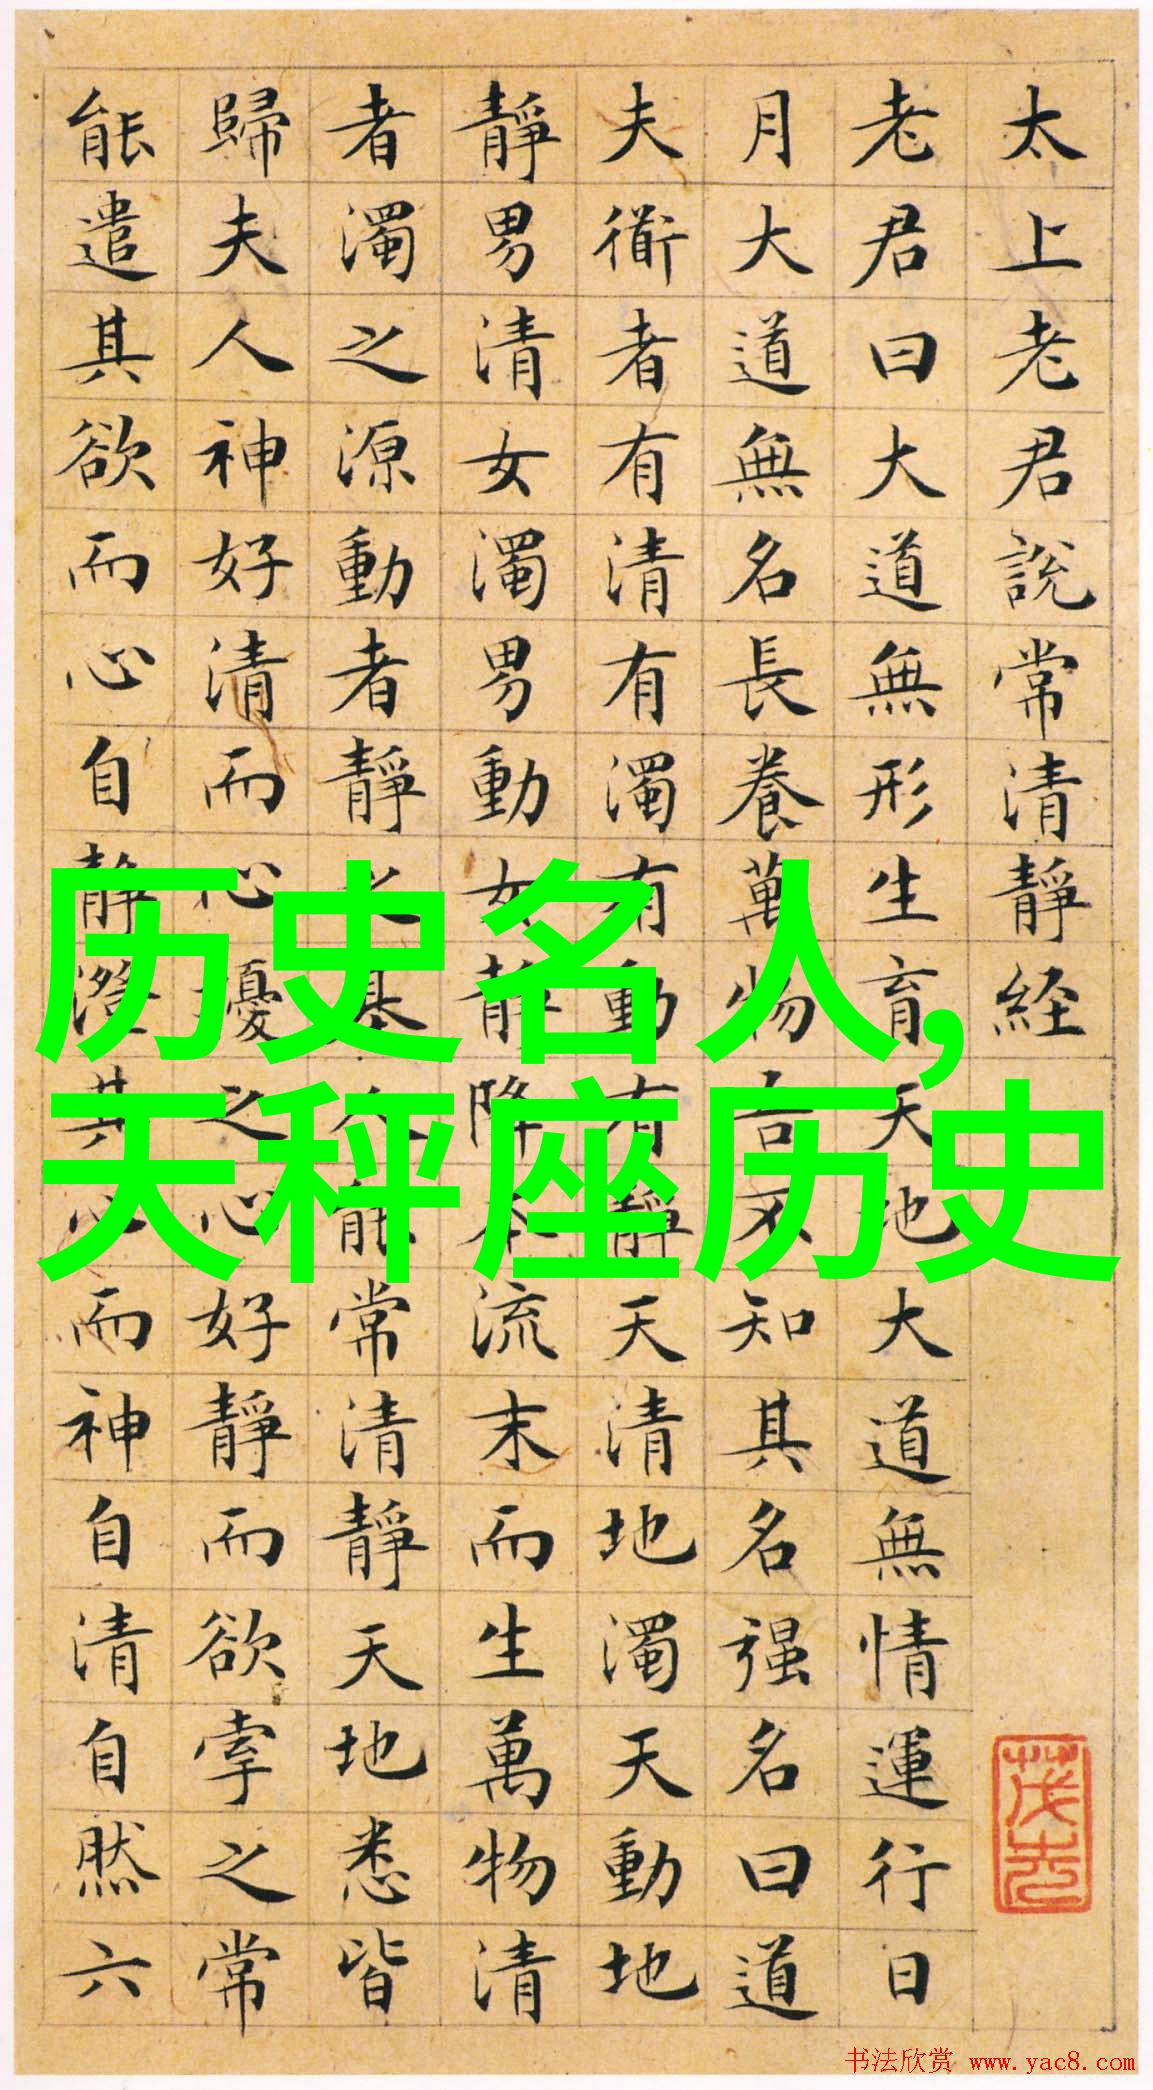 太上老君說常清靜経
老君曰大道無形生育天地大道無情運行日
月大道無名長養萬物吾不知其名强名曰道
夫衜者有清有濁有動有靜天清地濁天動地
靜男清女濁男動女静降本流末而生萬物清
者濁之源動者靜之基人能常清靜天地悉皆
歸夫人神好清而心擾之心好靜而欲牽之常
能遣其欲而心自静澄其心而神自清自然六
历史名人,
天秤座历史
书法欣赏 www.yac8.com